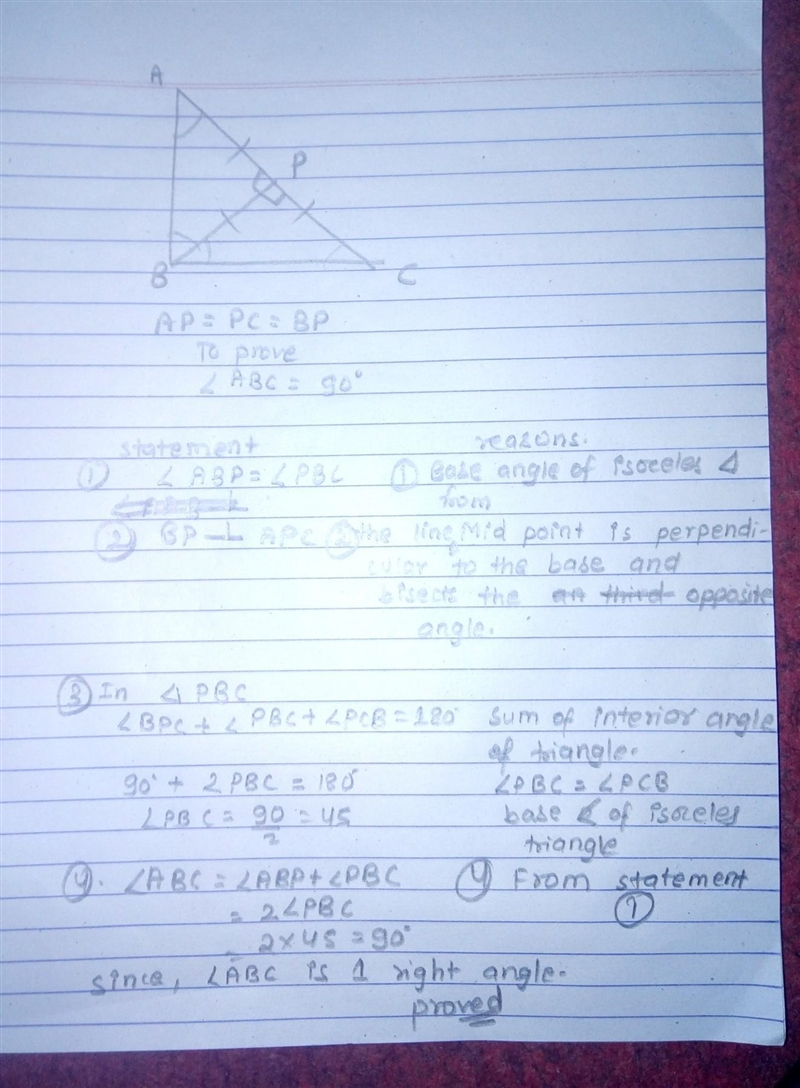 A
P
B
C
AP = PC = BP
To prove
∠ ABC = 90°
statement reasons.
① ∠ ABP = ∠ PBC ① Base angle of isoceles △
② BP ⊥ APC ② the line from Mid point is perpendi-
cular to the base and
bisects the an third opposite
angle.
③ In △ PBC
∠BPC + ∠PBC + ∠PCB = 180° sum of interior angle
of triangle.
90° + 2PBC = 180° ∠PBC = ∠PCB
∠PBC = 90/2 = 45 base ∠ of isoceles
triangle
④. ∠ABC = ∠ABP + ∠PBC ④ From statement
= 2∠PBC ①
= 2×45 = 90°
since, ∠ABC is 1 right angle.
proved